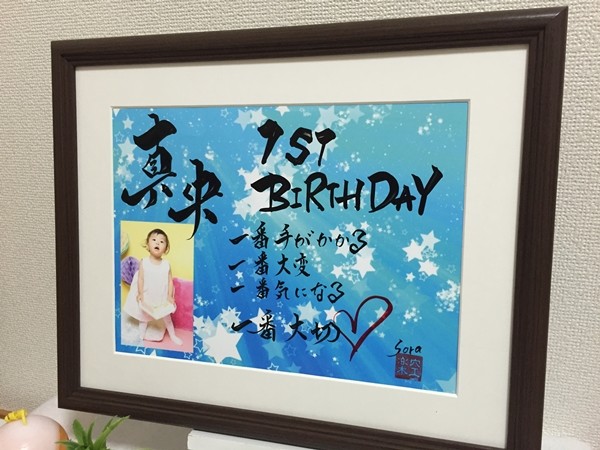 真央
1ST
BIRTHDAY
一番手がかかる
一番大変
一番気になる
一番大切
Sora